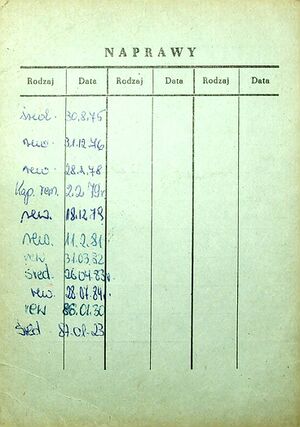 NAPRAWY
Rodzaj Data Rodzaj Data Rodzaj Data
śred. 30.8.75
rew. 31.12.76
rew. 28.2.78
Kap. rem. 2.2 79r
rew. 18.12.79
rew. 11.2.81
rew 31.03.82
śred. 26.04.83r.
rew. 28.07.84r.
rew 86.01.30
śred 87.01-23